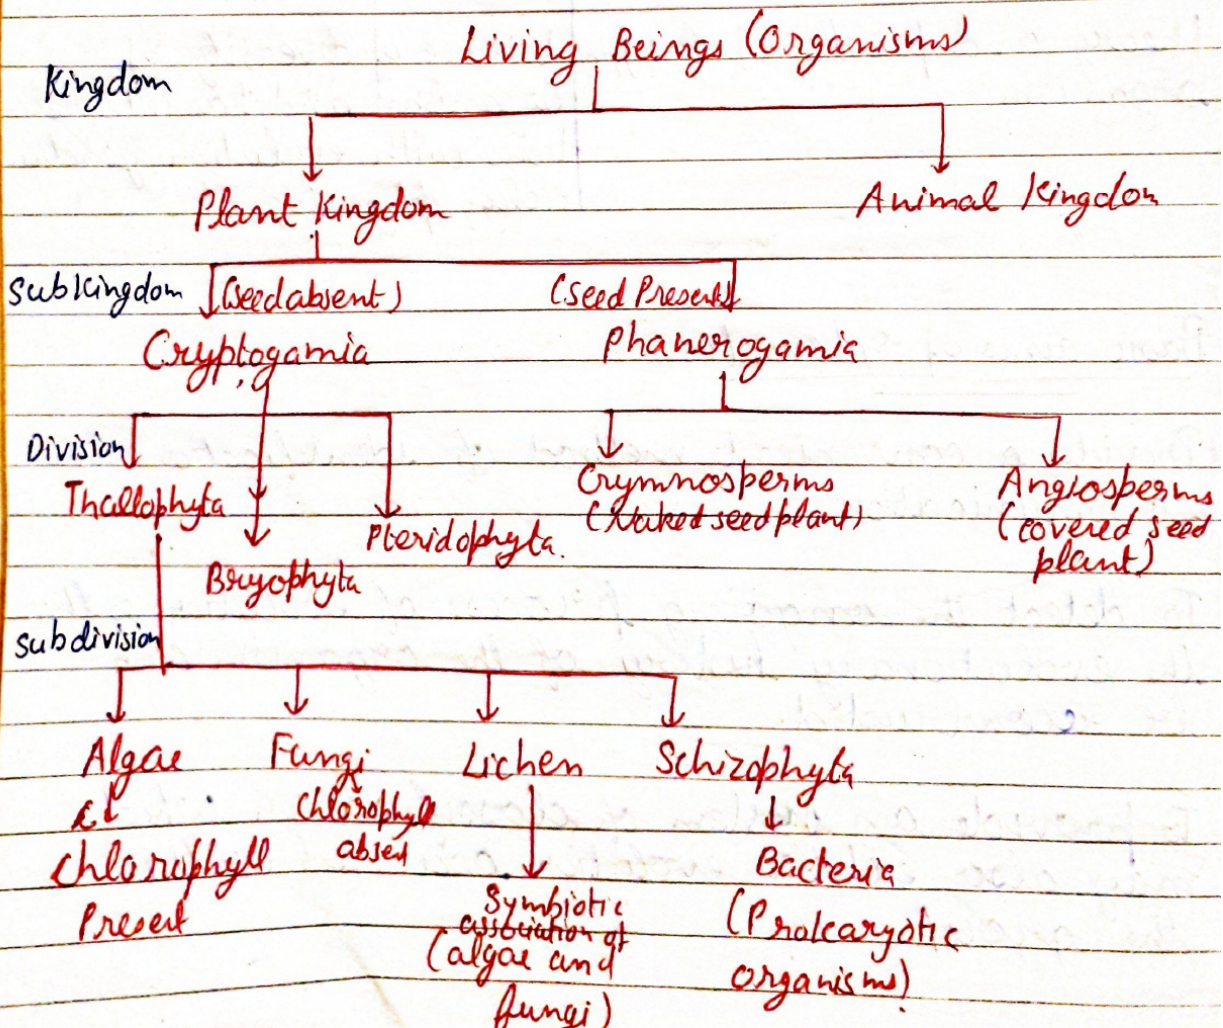 Living Beings (Organisms)
Kingdom
Plant Kingdom
Animal Kingdom
Subkingdom
(Seed absent)
(Seed Present)
Cryptogamia
Phanerogamia
Division
Thallophyta
Bryophyta
Pteridophyta.
Gymnosperms
(Naked seed plant)
Angiosperms
(covered seed
plant)
subdivision
Algae
chlorophyll
Present
Fungi
Chlorophyll
absent
Lichen
Symbiotic
association of
(algae and
fungi)
Schizophyta
Bacteria
(Prokaryotic
organisms)